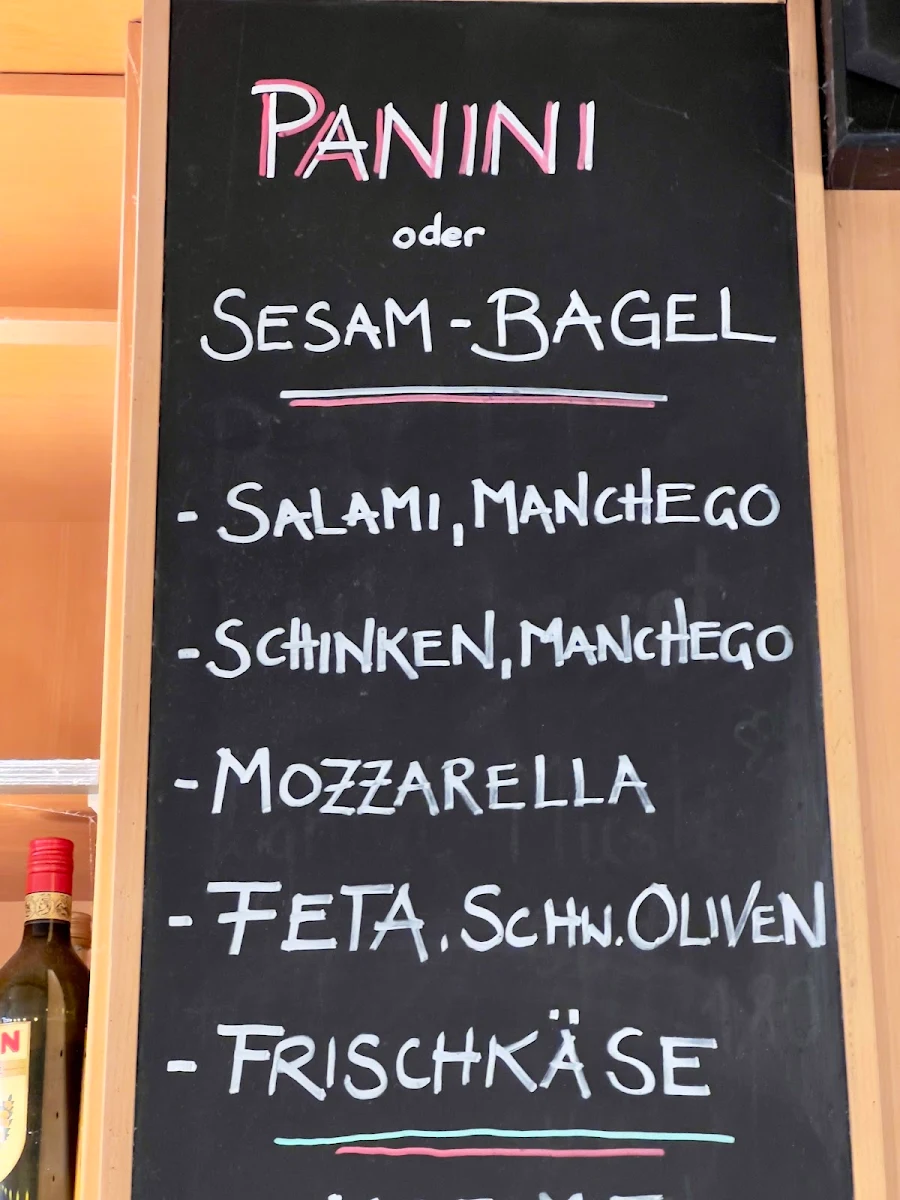 PANINI
oder
SESAM-BAGEL
- SALAMI, MANCHEGO
- SCHINKEN, MANCHEGO
- MOZZARELLA
- FETA, SCHW. OLIVEN
- FRISCHKÄSE
N